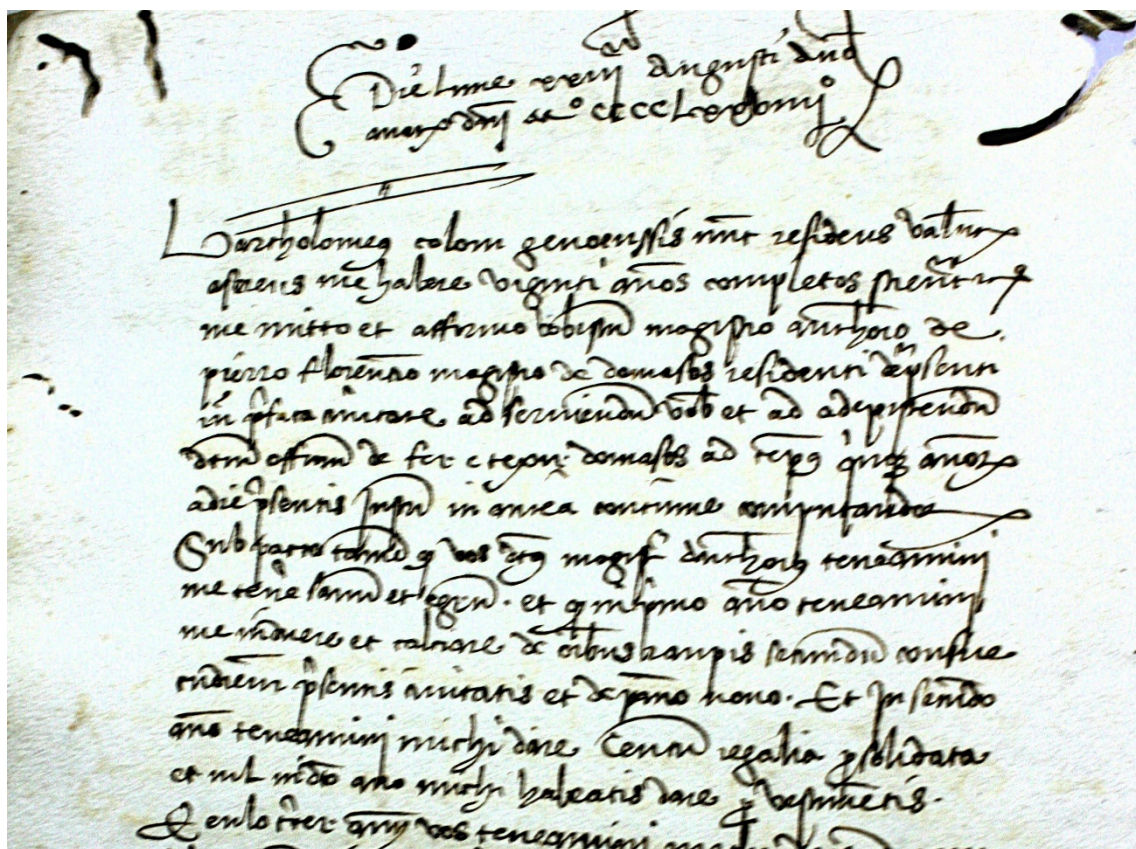 Die lune xxiiij Augusti dicti
anorum dnj Mº CCCCLxxx
Bartholomeus colom genoenssis nunc residens Valentie
asserens me habere viginti annos completos scienter
me mitto et affirmo vobiscum magistro anthonio de
pierro florentino magistro de domasos residenti de presenti
in prefata civitate ad serviendum vobis et ad adepiscendum
dictum officium de fer e texir domasos ad tempus quinque annorum
a die presentis Instrumenti in antea continue computandorum
Sub pacto tamen quod vos dictus magister Anthonius teneamini
me tenere sanum et egrum. et quod in primo anno teneamini
me induere et calciare de omnibus raupis secundum consue
tudinem presentis civitatis et de panno novo. Et In secundo
anno teneamini michi dare Centum regalia pro solidata
et nil in dicto anno michi habeatis dare pro vestimentis.
E en lo tercer any vos teneamini